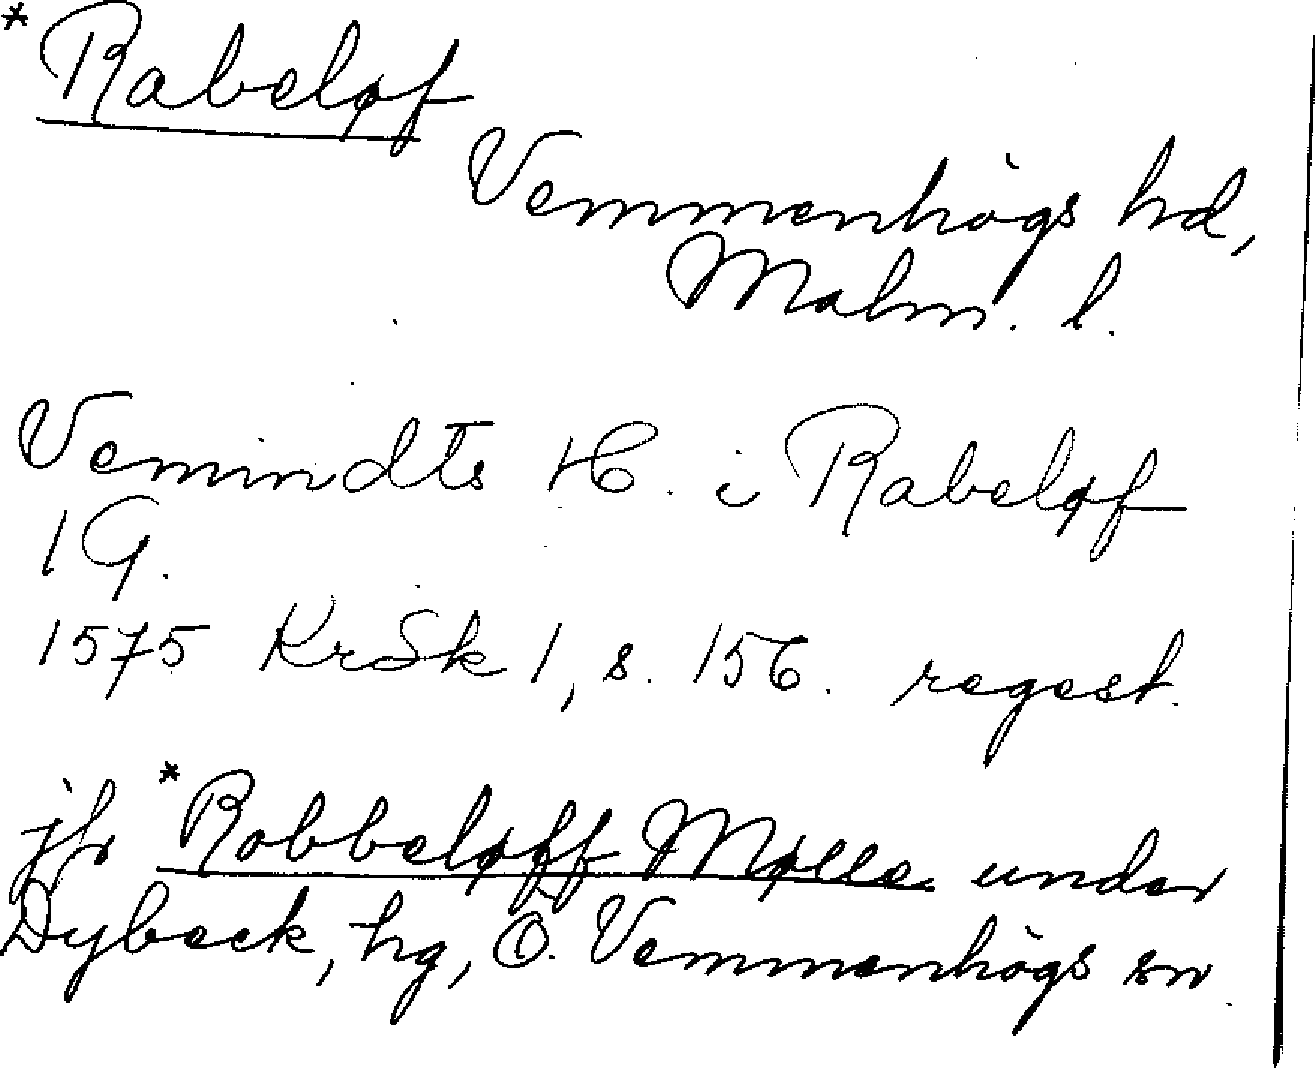 *Rabeløf
Vemmenhögs hd,
Malm. l.
Vemindts H. i Rabeløf
1 G.
1575 KrSk 1, s. 156. regest.
jfr *Robbeløff Mølle under
Dybeck, hg, Ö. Vemmenhögs sn.